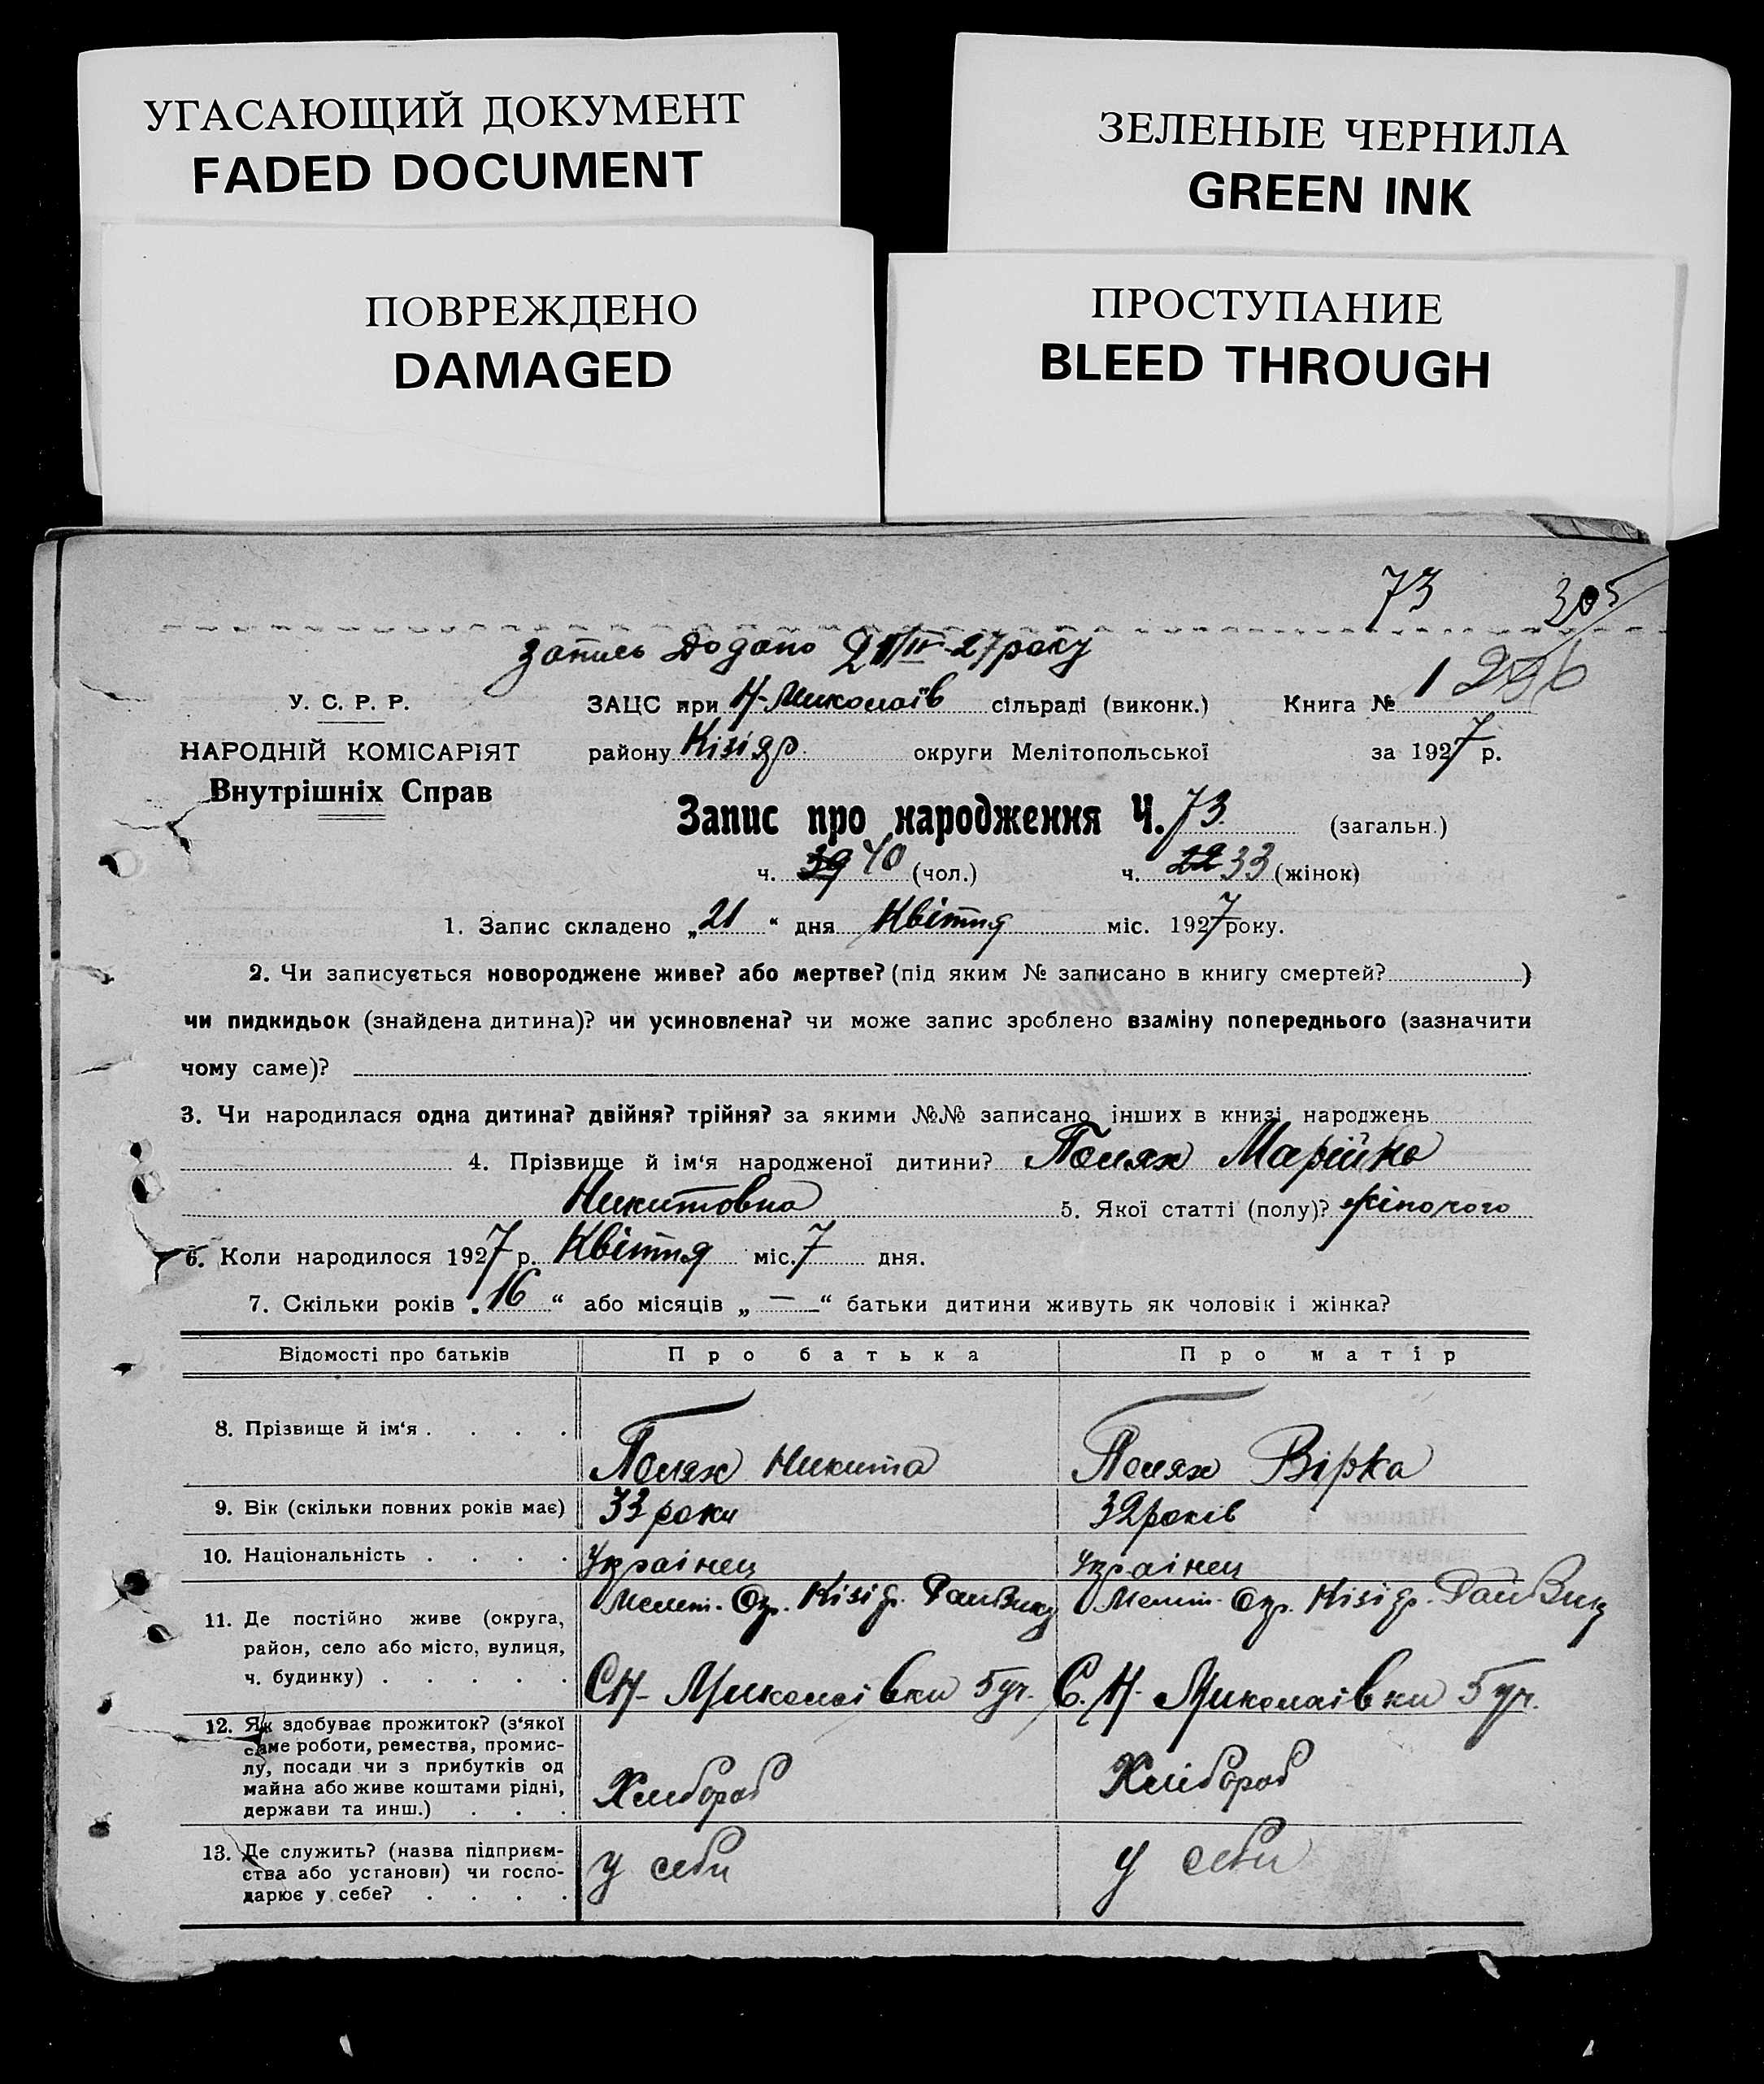 УГАСАЮЩИЙ ДОКУМЕНТ
FADED DOCUMENT
ЗЕЛЕНЫЕ ЧЕРНИЛА
GREEN INK
ПОВРЕЖДЕНО
DAMAGED
ПРОСТУПАНИЕ
BLEED THROUGH
73 305
запись додано 27 року
1 296
У. С. Р. Р.
ЗАЦС при Н-Миколаїв сільраді (виконк.) Книга №
НАРОДНІЙ КОМІСАРІЯТ району Кізіяр. округи Мелітопольської за 1927 р.
Внутрішніх Справ
Запис про народження Ч. 73 (загальн.)
ч. 39 40 (чол.) ч. 22 33 (жінок)
1. Запис складено „21“ дня Квітня міс. 1927 року.
2. Чи записується новороджене живе? або мертве? (під яким № записано в книгу смертей? )
чи пидкидьок (знайдена дитина)? чи усиновлена? чи може запис зроблено взаміну попереднього (зазначити
чому саме)?
3. Чи народилася одна дитина? двійня? трійня? за якими №№ записано інших в книзі народжень
4. Прізвище й ім‘я народженої дитини? Полях Марійка
Никитовна 5. Якої статті (полу)? жіночого
6. Коли народилося 1927 р. Квітня міс. 7 дня.
7. Скільки років „16“ або місяців „—“ батьки дитини живуть як чоловік і жінка?
Відомості про батьків Про батька Про матір
8. Прізвище й ім‘я . . . . Полях Никита Полях Вірка
9. Вік (скільки повних років має) 33 роки 32 років
10. Національність . . . . Украінец Украінец
11. Де постійно живе (округа, район, село або місто, вулиця, ч. будинку) . . . . .
Меліт. Окр. Кізіяр. РайВику Меліт. Окр. Кізіяр. РайВику
С Н- Миколаівки 5 уч. С. Н- Миколаівки 5 уч.
12. Як здобуває прожиток? (з‘якої саме роботи, ремества, промислу, посади чи з прибутків од майна або живе коштами рідні, держави та инш.) . . .
Хлибороб Хлібороб
13. Де служить? (назва підприємства або установи) чи господарює у себе? . . . .
у себи у себи